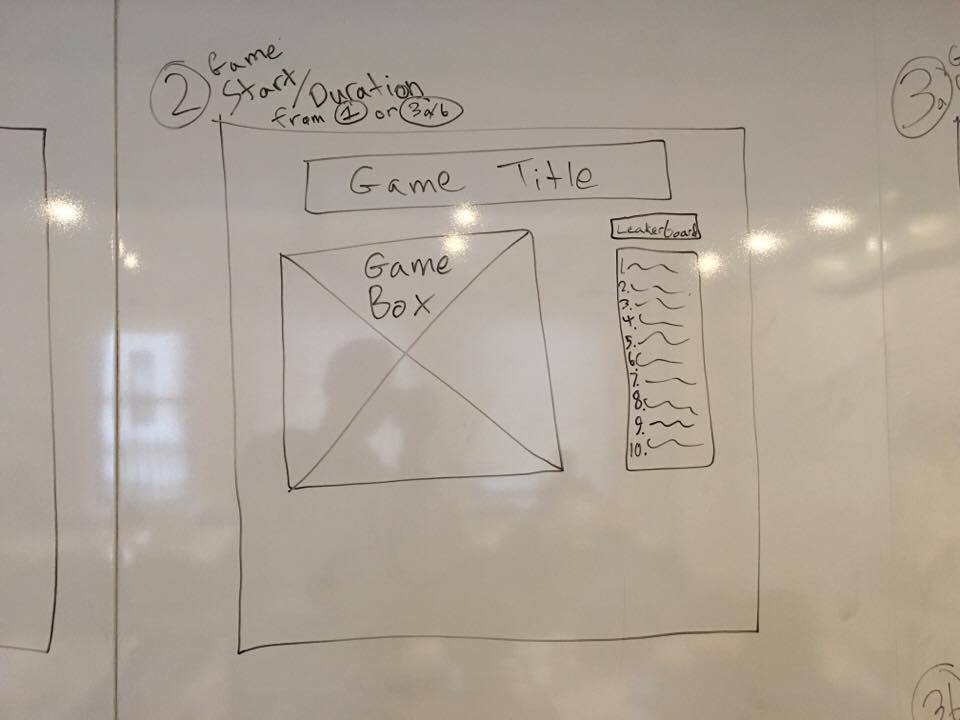 2 Game
Start/Duration
from 1 or 3a/b
Game Title
Leakerboard
Game
Box
1.
2.
3.
4.
5.
6.
7.
8.
9.
10.
3a
3b